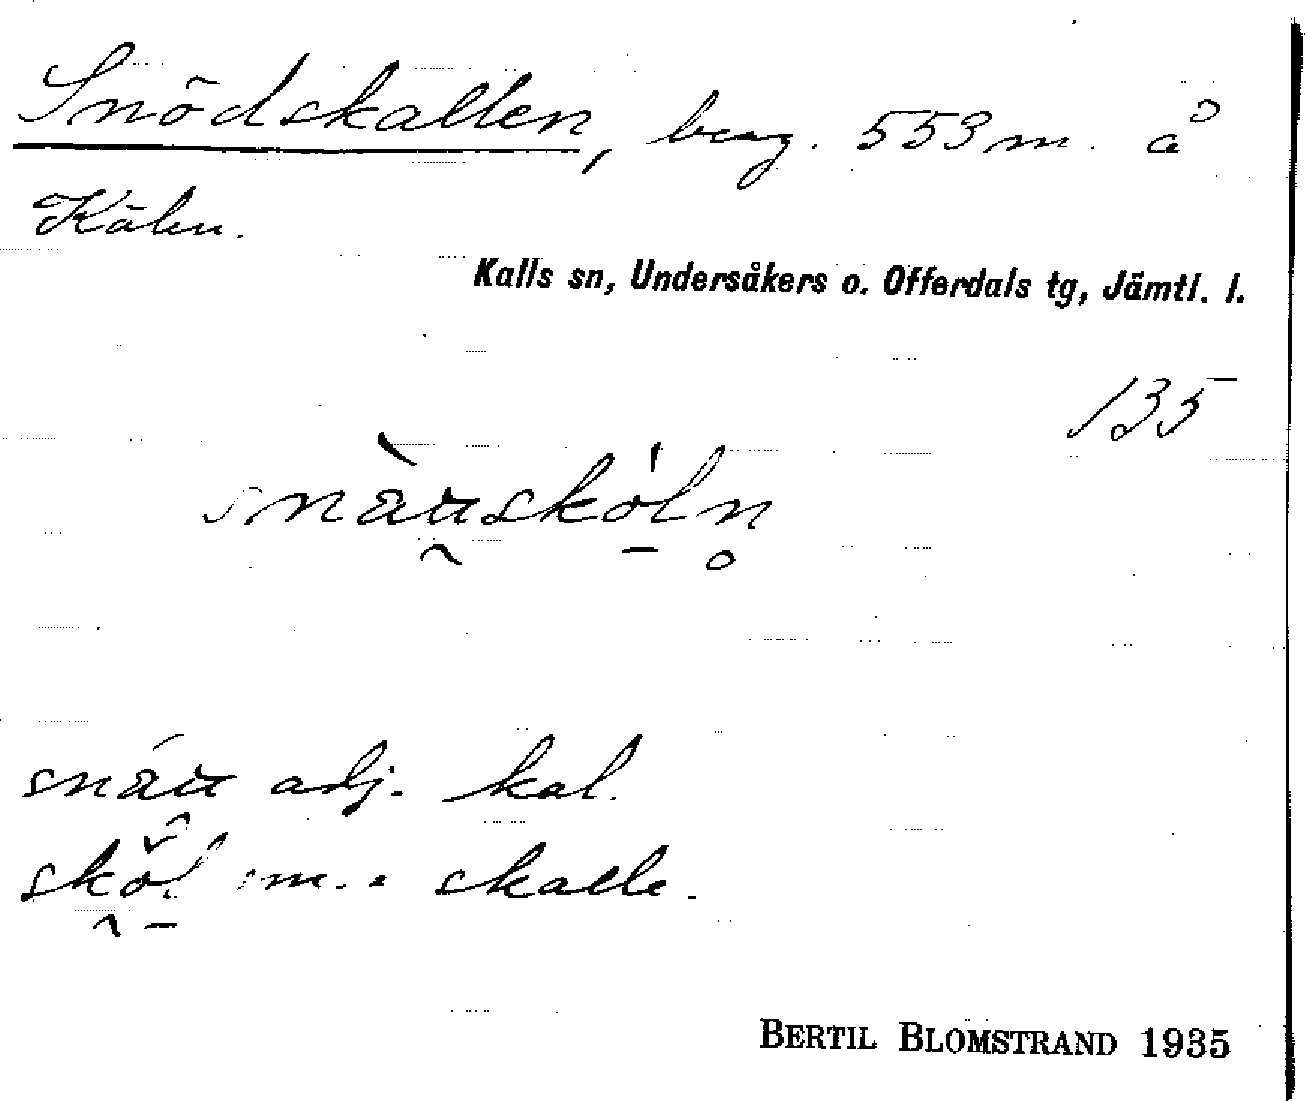 Snödskallen, berg. 553 m. å
Kälen.
Kalls sn, Undersåkers o. Offerdals tg, Jämtl. l.
135
snä̀u̯skö̱ln̥
snáu adj. kal.
sköl sm. = skalle.
BERTIL BLOMSTRAND 1935